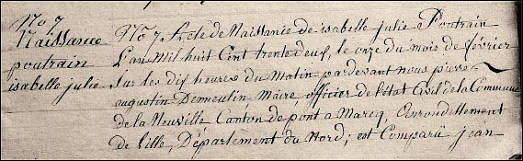 No 7
Naissance
poutrain
isabelle julie
No 7. Acte de Naissance de isabelle julie Poutrain
L'an Mil huit Cent trente deux, le onze du mois de février
sur les dix heures du Matin pardevant nous pierre
augustin Demeulin Maire, officier de l'état Civil de la Commune
de la Neuville Canton de pont a Marcq, Carrondissement
de Lille, Département du Nord; est Comparu jean